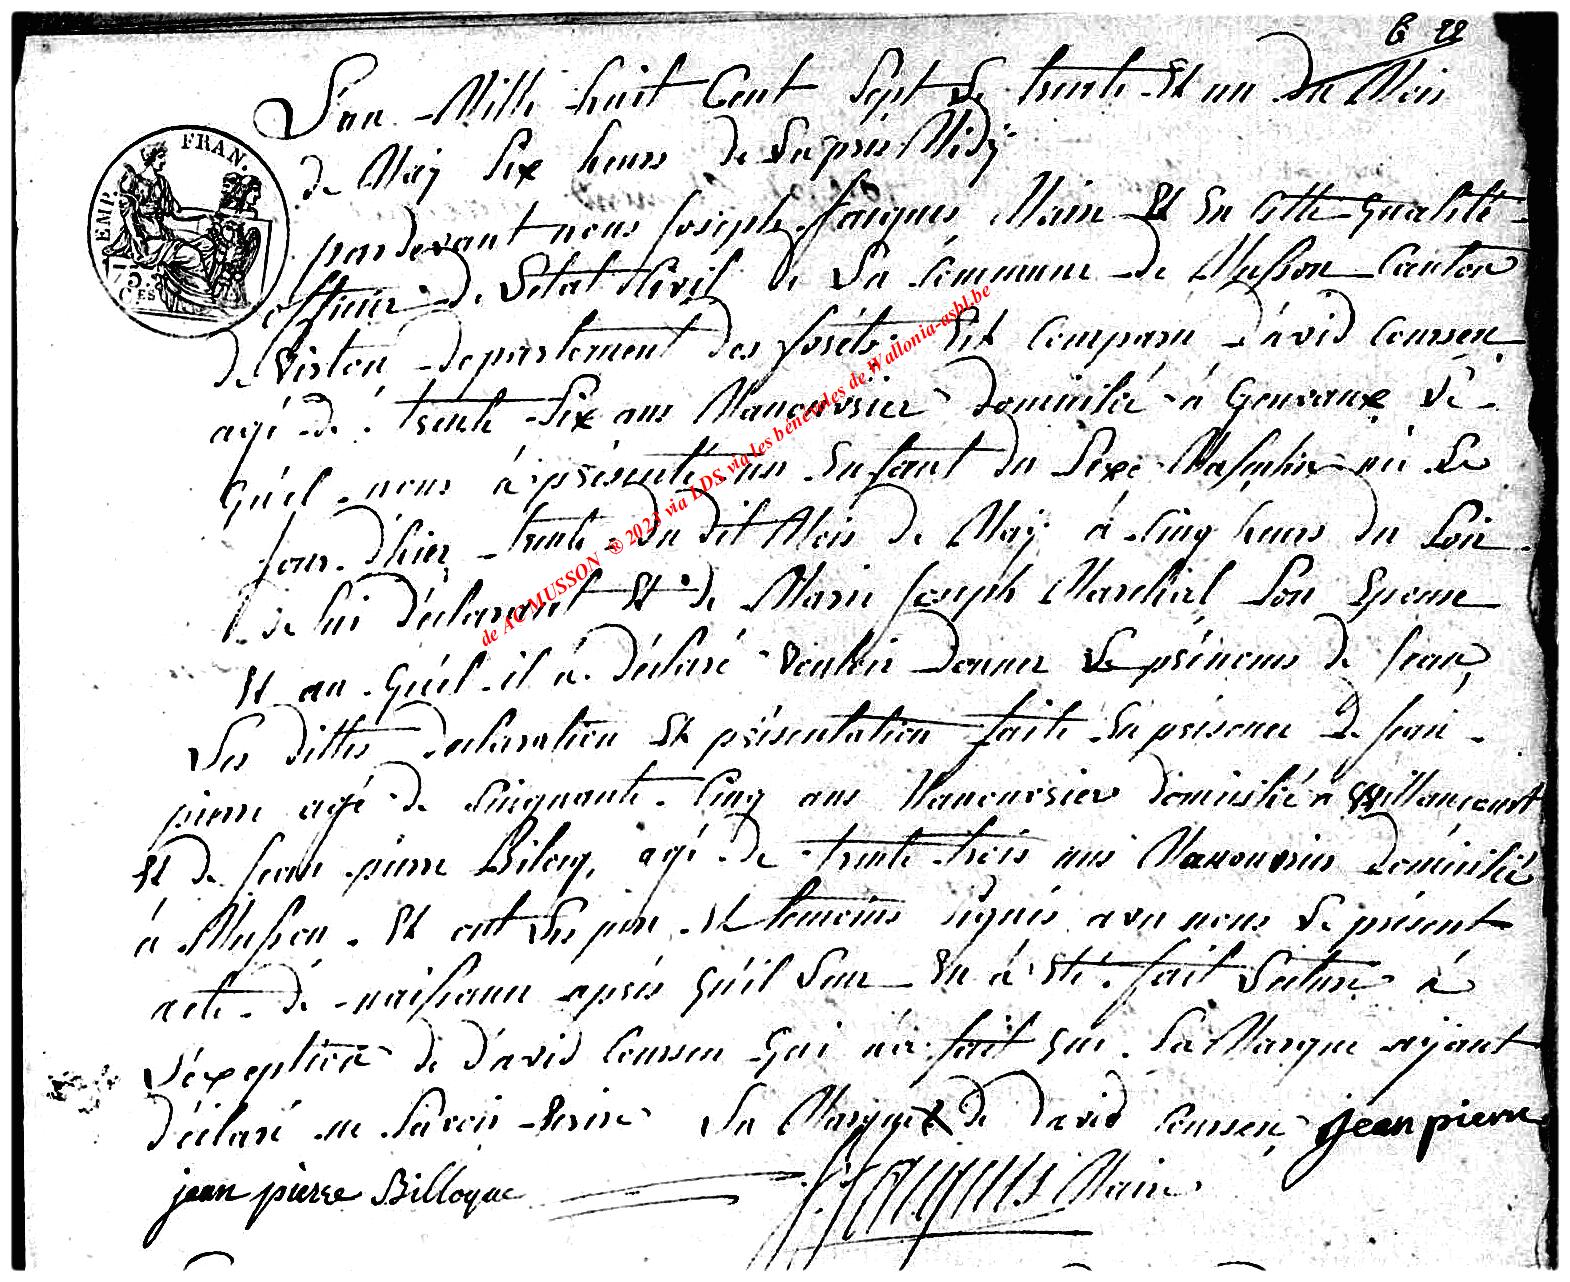 L'an Mille huit Cent Sept Le trente Et un du Mois
de Maÿ Six heurs de L'apres Midÿ
EMP. FRAN.
75.
C.ES
pardevant nous Joseph Jacques Maire Et En Cette qualité
officier de L'état Civil de La Commune de Musson Canton
de Virton departement des forêts. Est Comparu david Coursen
agé de trente Six ans Manouvrier domicilié à Gennvaux Le
quel nous à présenté un Enfant du Sexe Masculin né Le
Jour d'hier trente du dit Mois de Maÿ à Cinq heurs du Soir
de lui déclarant Et de Marie Joseph Marchal Son Epouse
Et au quel il à déclaré Vouloir donner Le prénoms de Jean,
Les dittes declaration Et présentation faite En présence de Jean
pierre agé de Cinquante Cinq ans Manouvrier domicilié à Willancourt
Et de Jean pierre Biloq, agé de trente trois ans Manouvrier domicilié
à Musson. Et ont Les pere Et temoins signés avec nous Le présent
acte de naissance apres qu'il Leur En à Eté fait Lecture à
L'éxeption de d'avid Coursen qui n'a fait que Sa Marque ayant
déclaré ne Savoir Ecrire La Marque X de david Coursen, jean pierre
jean pierre Billoque J. Jacques Maire
de AC MUSSON ® 2023 via LDS via les bénévoles de Wallonia-asbl.be